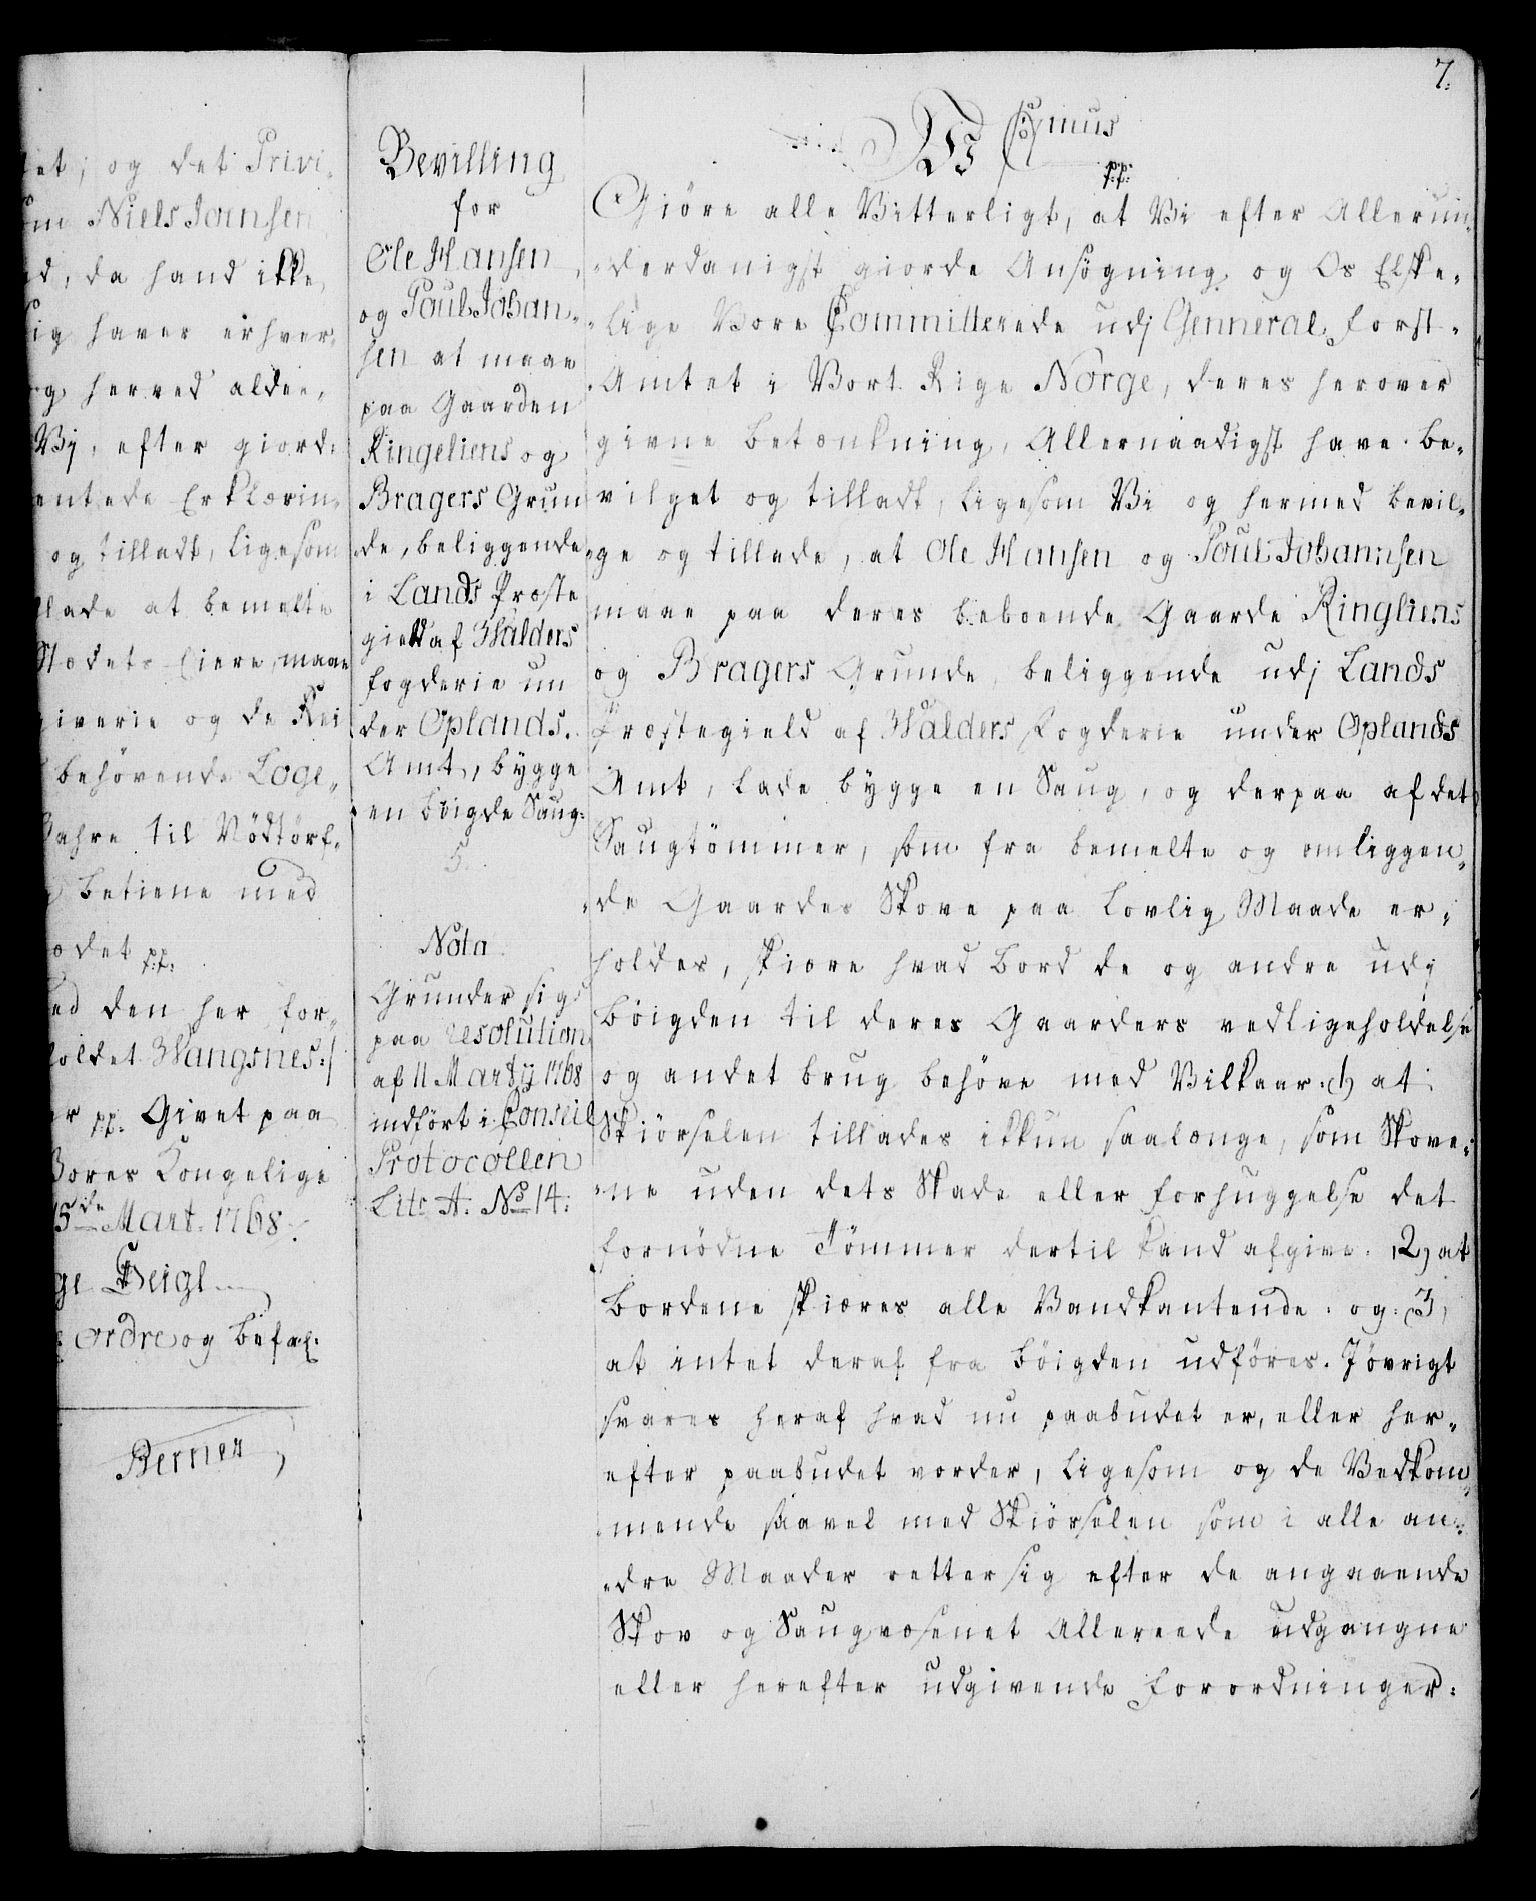 7.
et; og det Privi-
m Niels Jansen
d, da hand ikke
ig haver erhver-
og herved alde-,
Vij, efter giord:
entede Erklærin-
og tilladt, ligesom
lade at bemelte
Stedets Eiere, maae
giverie og de Rei
behövende Loge-
ahre til Nödtörf-
betiene med
ædet pp:
ed den her for-
oldet Wangsnes:/
er pp. Givet paa
Vores Kongelige
15de Mart. 1768.
ge Seigl
ordre og befal:
Berner
Bevilling
for
Ole Hansen
og Poul Johan-
sen at maae
paa Gaarden
Ringeliens og
Bragers Grun
de, beliggende
i Lands Præste
gield af Walders
fogderie un
der Oplands.
Amt, bygge
en böigde Saug.
5.
Nota
Grunder sig
paa resolution
af 11 Martij 1768
indfört i Conseil
Protocollen
Litr A. No 14.
W Cr 7mus
pp:
Giöre alle Vitterligt, at Vi efter Allerun-
derdanigst giorde Ansögning, og Os Elske-
lige Vore Committerede udj Genneral forst-
Amtet i Vort Rige Norge, deres herover
givne betænkning, Allernaadigst have be-
vilget og tilladt, ligesom Vi og hermed bevil-
ge og tillade, at Ole Hansen og Poul Johannsen
maae paa deres beboende Gaarde Ringliens
og Bragers Grunde, beliggende udj Lands
Præstegield af Walders Fogderie under Oplands
Amt, lade bygge en Saug, og derpaa af det
Saugtömmer, som fra bemelte og omliggen-
de Gaardes Skove paa lovlig Maade er-
holdes, skiære hvad bord de og andre udj
böigden til deres Gaarders vedligeholdelse
og andet brug behöve med Vilkaar: 1) at
Skiörselen tillades ikkun saalænge, som Skove-
ne uden dets Skade eller forhuggelse det
fornödne Tömmer dertil kand afgive. 2, at
bordene skiæres alle Vandkantende. og 3,
at intet deraf fra böigden udföres. J övrigt
svares heraf hvad nu paabudet er, eller her-
efter paabudet vorder, ligesom og de Vedkom-
mende saavel med Skiörselen som i alle an-
dre Maader retter sig efter de angaaende
Skov og Saugvæsenet Allereede udgangne
eller herefter udgivende forordninger.